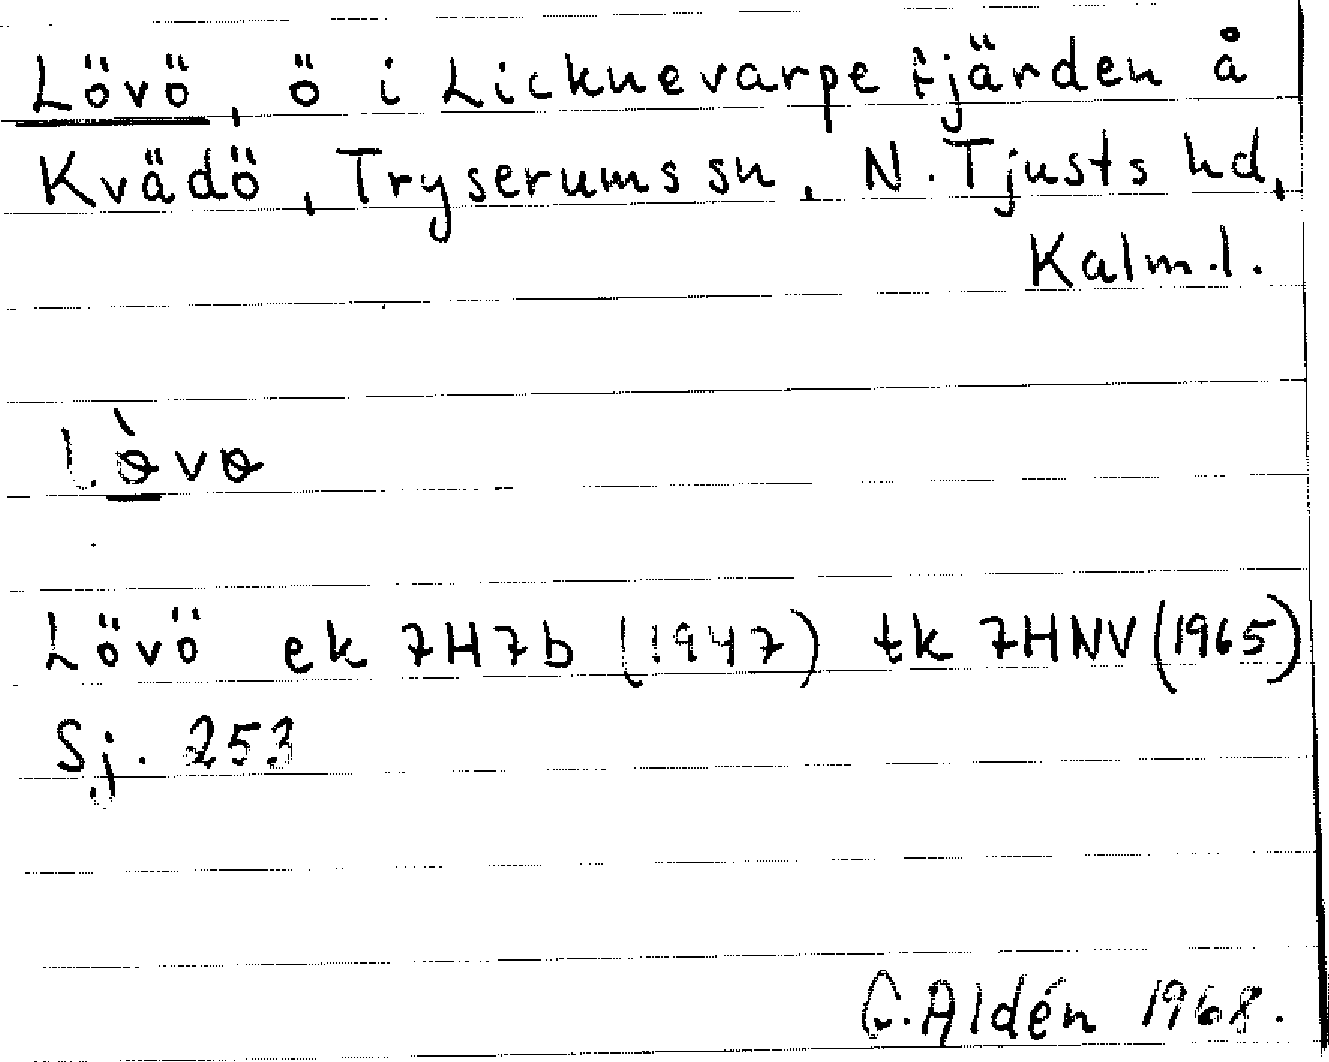 Lövö, ö i Licknevarpefjärden å
Kvädö, Tryserums sn, N. Tjusts hd,
Kalm.l.
Lövö ek 7H7b (1947) tk 7HNV (1965)
Sj. 253
C. Aldén 1968.